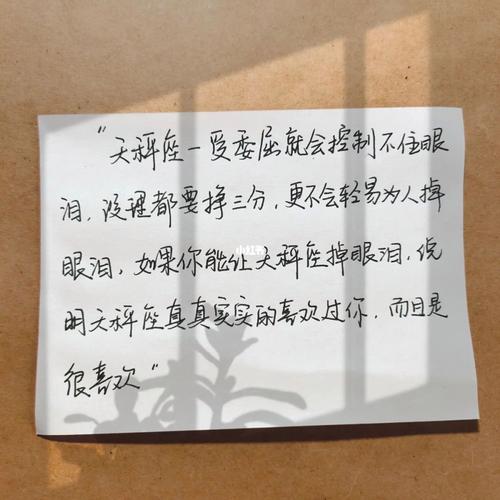 "天秤座一受委屈就会控制不住眼
泪,没理都要挣三分,更不会轻易为人掉
眼泪,如果你能让天秤座掉眼泪,说
明天秤座真真实实的喜欢过你,而且是
很喜欢"
小红书